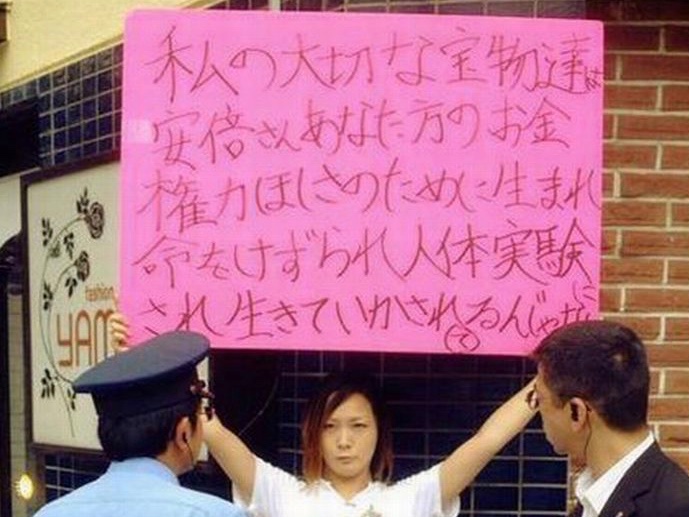 私の大切な宝物達は
安倍さんあなた方のお金
権力ほしさのために生まれ
命をけずられ人体実験に
され生きていかされてるんじゃない
fashion
YAM